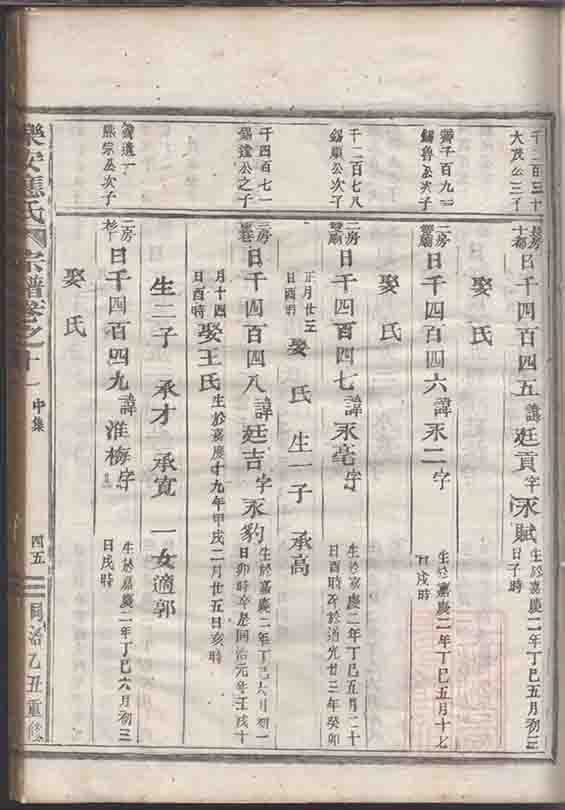 千二百三十
大茂公三子
長房
十都
日千四百四五 諱廷貢字永賦 生於嘉慶二年丁巳五月初三
日子時
娶氏
千百九
錫魯公次子
二房
日千四百四六 諱永二字 生於嘉慶二年丁巳五月十七
日戌時
娶氏
千二百七八
錫康公次子
二房
日千四百四七 諱永亳字 生於嘉慶二年丁巳五月二十
日酉時卒於道光廿三年癸卯
正月廿三
日酉時
娶 氏 生一子 承高
千四百七一
錫遠公之子
二房
日千四百四八 諱廷吉字永豹 生於嘉慶二年丁巳六月初一
日卯時卒於同治元年壬戌十
月十四
日酉時
娶王氏 生於嘉慶十九年甲戌二月廿五日亥時
生二子 承才 承寬 一女適郭
遺一
熊宗公次子
二房
日千四百四九 諱淮梅字 生於嘉慶二年丁巳六月初三
日戌時
娶氏
樂安應氏 宗譜卷之十一 中集 四五 同治乙丑重修